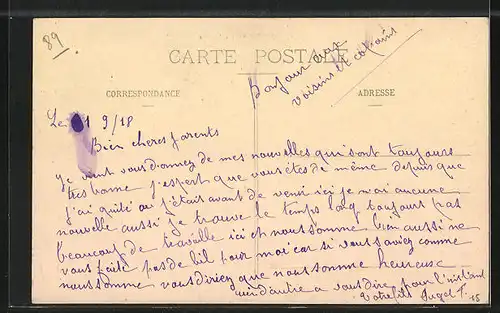 89
CARTE POSTALE
Bonjour aux
voisins et copains
CORRESPONDANCE
ADRESSE
Le 1 9/18
Bien cheres parents
Je vient vous donnez de mes nouvelles qui sont toujours
tres bonne j'espert que vous êtes de même depuis que
j'ai quité ou j'était avant de venir ici je n'ai aucune
nouvelle aussi je trouve le temps long toujours pas
beaucoup de travaille ici et nous somme bien aussi ne
vous faite pas de bil pour moi car si vous saviez comme
nous somme vous diriez que nous somme heureuse
rien d'autre a vous dire pour l'instant
Votre fils